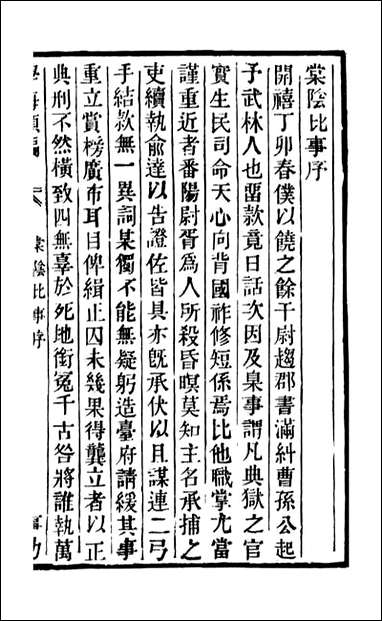 棠陰比事序
開禧丁卯春僕以饒之餘干尉趨郡書滿糾曹孫公起
予武林人也畱款竟日話次因及臬事謂凡典獄之官
實生民司命天心向背國祚修短係焉比他職掌尤當
謹重近者番陽尉胥爲人所殺昏暝莫知主名承捕之
吏續執俞達以告證佐皆具亦旣承伏以且謀連二弓
手結款無一異詞某獨不能無疑躬造臺府請緩其事
重立賞榜廣布耳目俾緝正囚未幾果得龔立者以正
典刑不然橫致四無辜於死地銜冤千古咎將誰執萬
學海類編
棠陰比事序